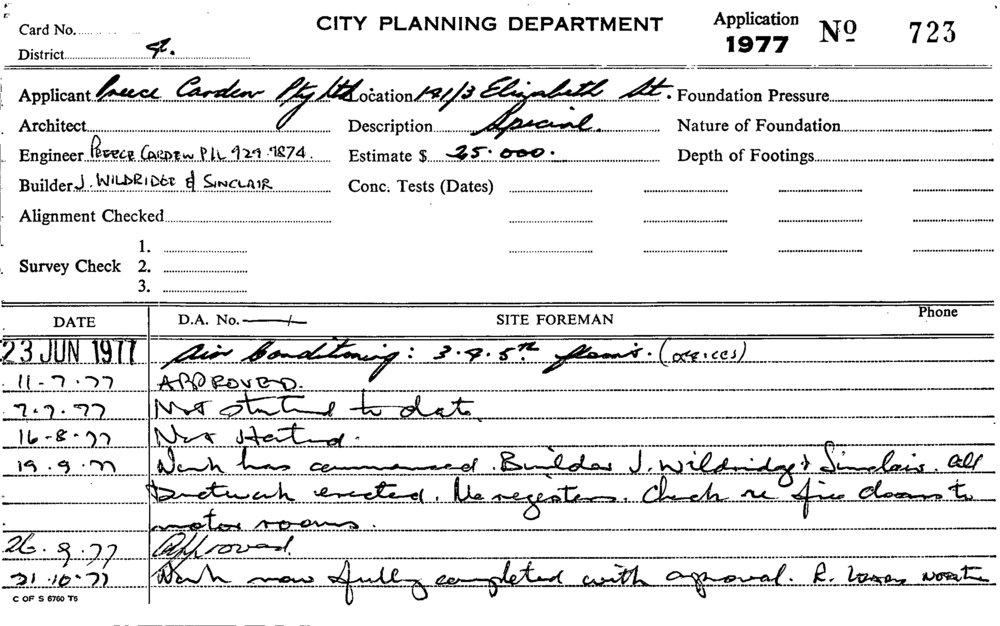 CITY PLANNING DEPARTMENT
Card No.
Application 1977 No 723
District 4.
Applicant Preece Carden Pty Ltd Location 121/3 Elizabeth St. Foundation Pressure
Architect Description Special. Nature of Foundation
Engineer PREECE CARDEN P/L 929.7874. Estimate $ 25.000. Depth of Footings
Builder J. WILDRIDGE & SINCLAIR Conc. Tests (Dates)
Alignment Checked
1.
Survey Check 2.
3.
DATE D.A. No. SITE FOREMAN Phone
23 JUN 1977 Air Conditioning: 3.4.5th floors. (OFFICES)
11-7-77 APPROVED.
7.7.77 Not started to date
16-8-77 Not Started.
19.9.77 Work has commenced. Builder J. Wildridge & Sinclair. All
Ductwork erected. No registers. Check re fire doors to
motor rooms.
26.9.77 Approved.
21.10.77 Work now fully completed with aproval. R.
C OF S 6760 T5